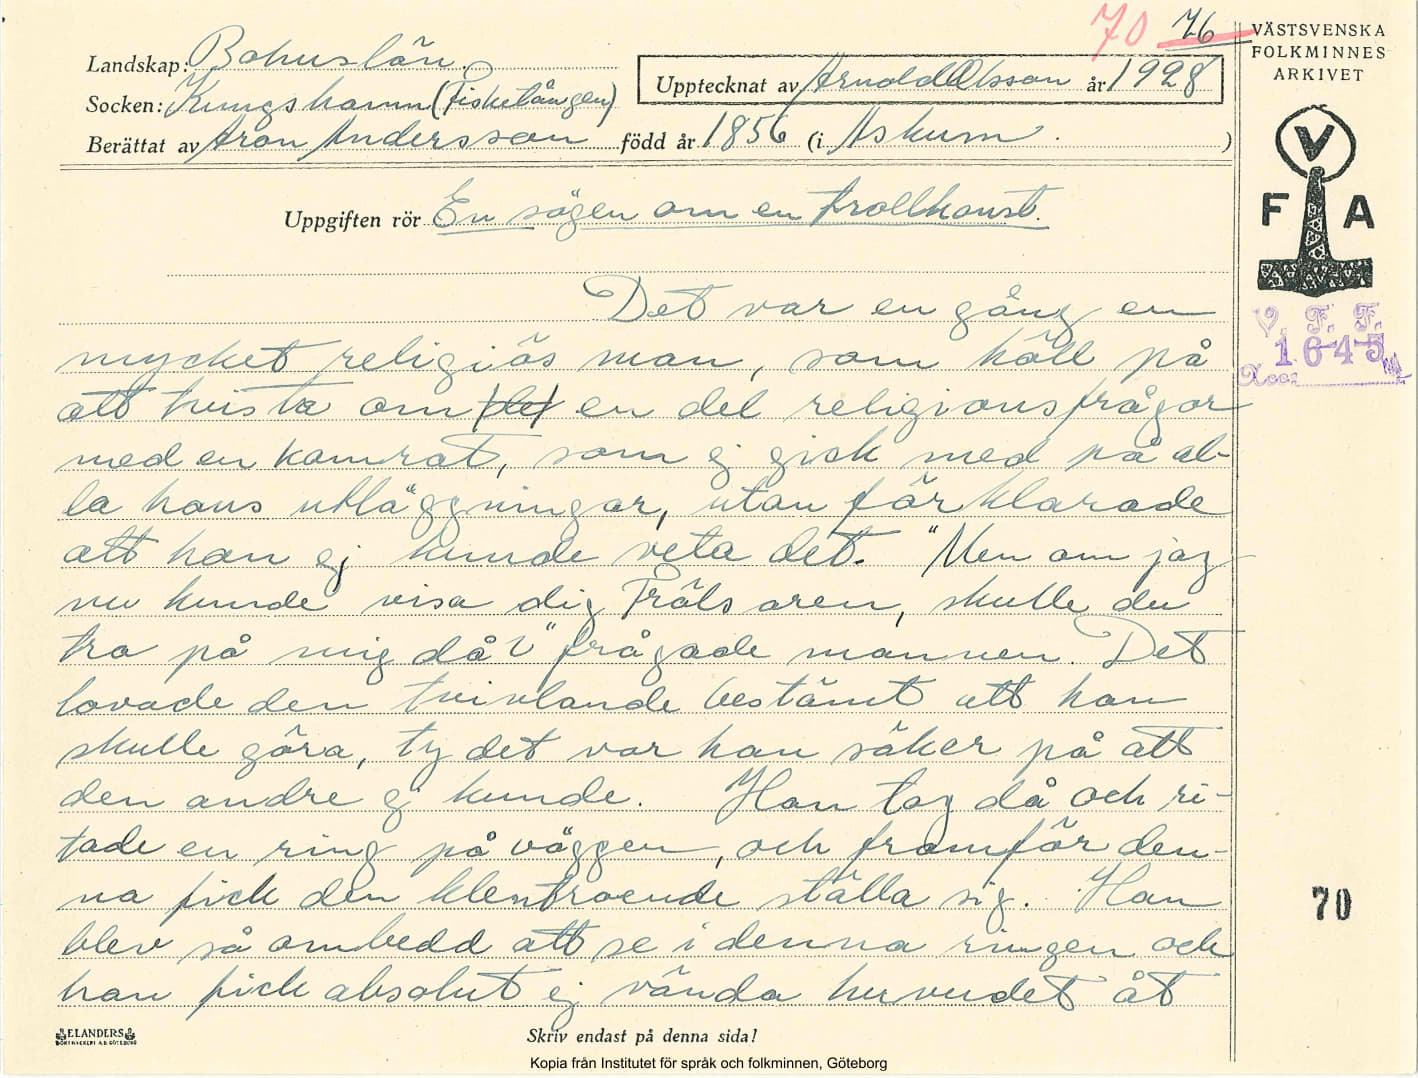 70 76
VÄSTSVENSKA
FOLKMINNES
ARKIVET
Landskap: Bohuslän.
Socken: Kungshamn (Fisketången)
Berättat av Aron Andersson född år 1856 (i Askum.)
Upptecknat av Arnold Olsson år 1928
Uppgiften rör En sägen om en trollkonst.
V
F A
V. F. F.
1645
Acc:
Det var en gång en
mycket religiös man, som höll på
att tvista om (det) en del religionsfrågor
med en kamrat, som ej gick med på al-
la hans utläggningar, utan förklarade
att han ej kunde veta det. "Men om jag
nu kunde visa dig Frälsaren, skulle du
tro på mig då?" frågade mannen. Det
lovade den tvivlande bestämt att han
skulle göra, ty det var han säker på att
den andre ej kunde. Han tog då och ri-
tade en ring på väggen, och framför den-
na fick den klentroende ställa sig. Han
blev så ombedd att se i denna ringen och
han fick absolut ej vända huvudet åt
70
ELANDERS
BOKTRYCKERI A.B. GÖTEBORG
Skriv endast på denna sida!
Kopia från Institutet för språk och folkminnen, Göteborg